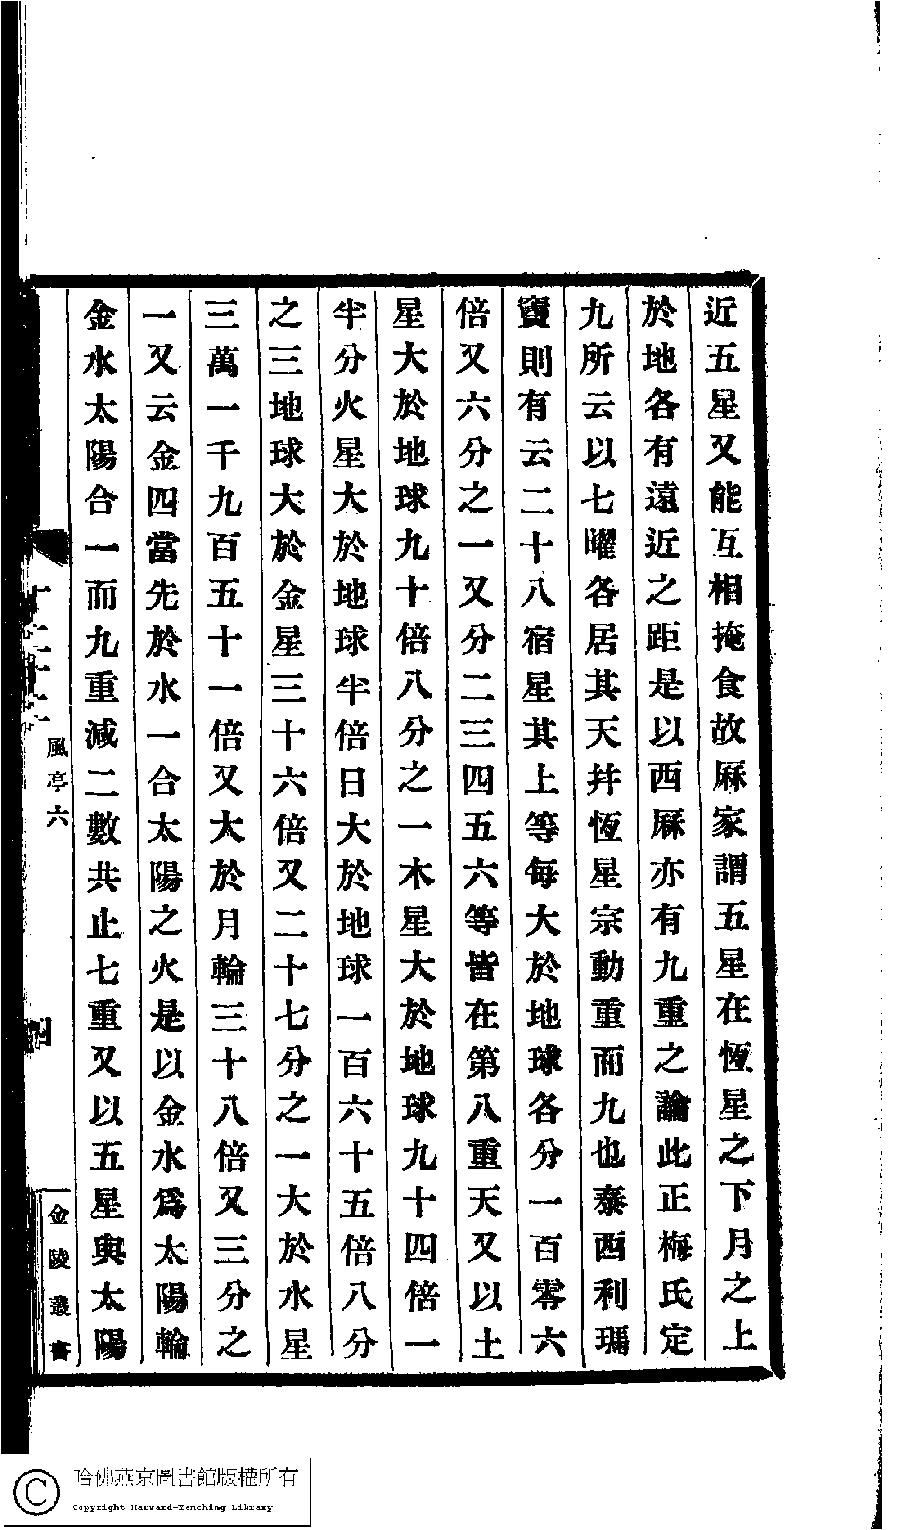 近五星又能互相掩食故厤家謂五星在恆星之下月之上
於地各有遠近之距是以西厤亦有九重之論此正梅氏定
九所云以七曜各居其天幷恆星宗動重而九也泰西利瑪
竇則有云二十八宿星其上等每大於地球各分一百零六
倍又六分之一又分二三四五六等皆在第八重天又以土
星大於地球九十倍八分之一木星大於地球九十四倍一
半分火星大於地球半倍日大於地球一百六十五倍八分
之三地球大於金星三十六倍又二十七分之一大於水星
三萬一千九百五十一倍又大於月輪三十八倍又三分之
一又云金四當先於水一合太陽之火是以金水爲太陽輪
金水太陽合一而九重減二數共止七重又以五星與太陽
風亭六
四
金陵叢書
哈佛燕京圖書館版權所有
Copyright Harvard-Yenching Library